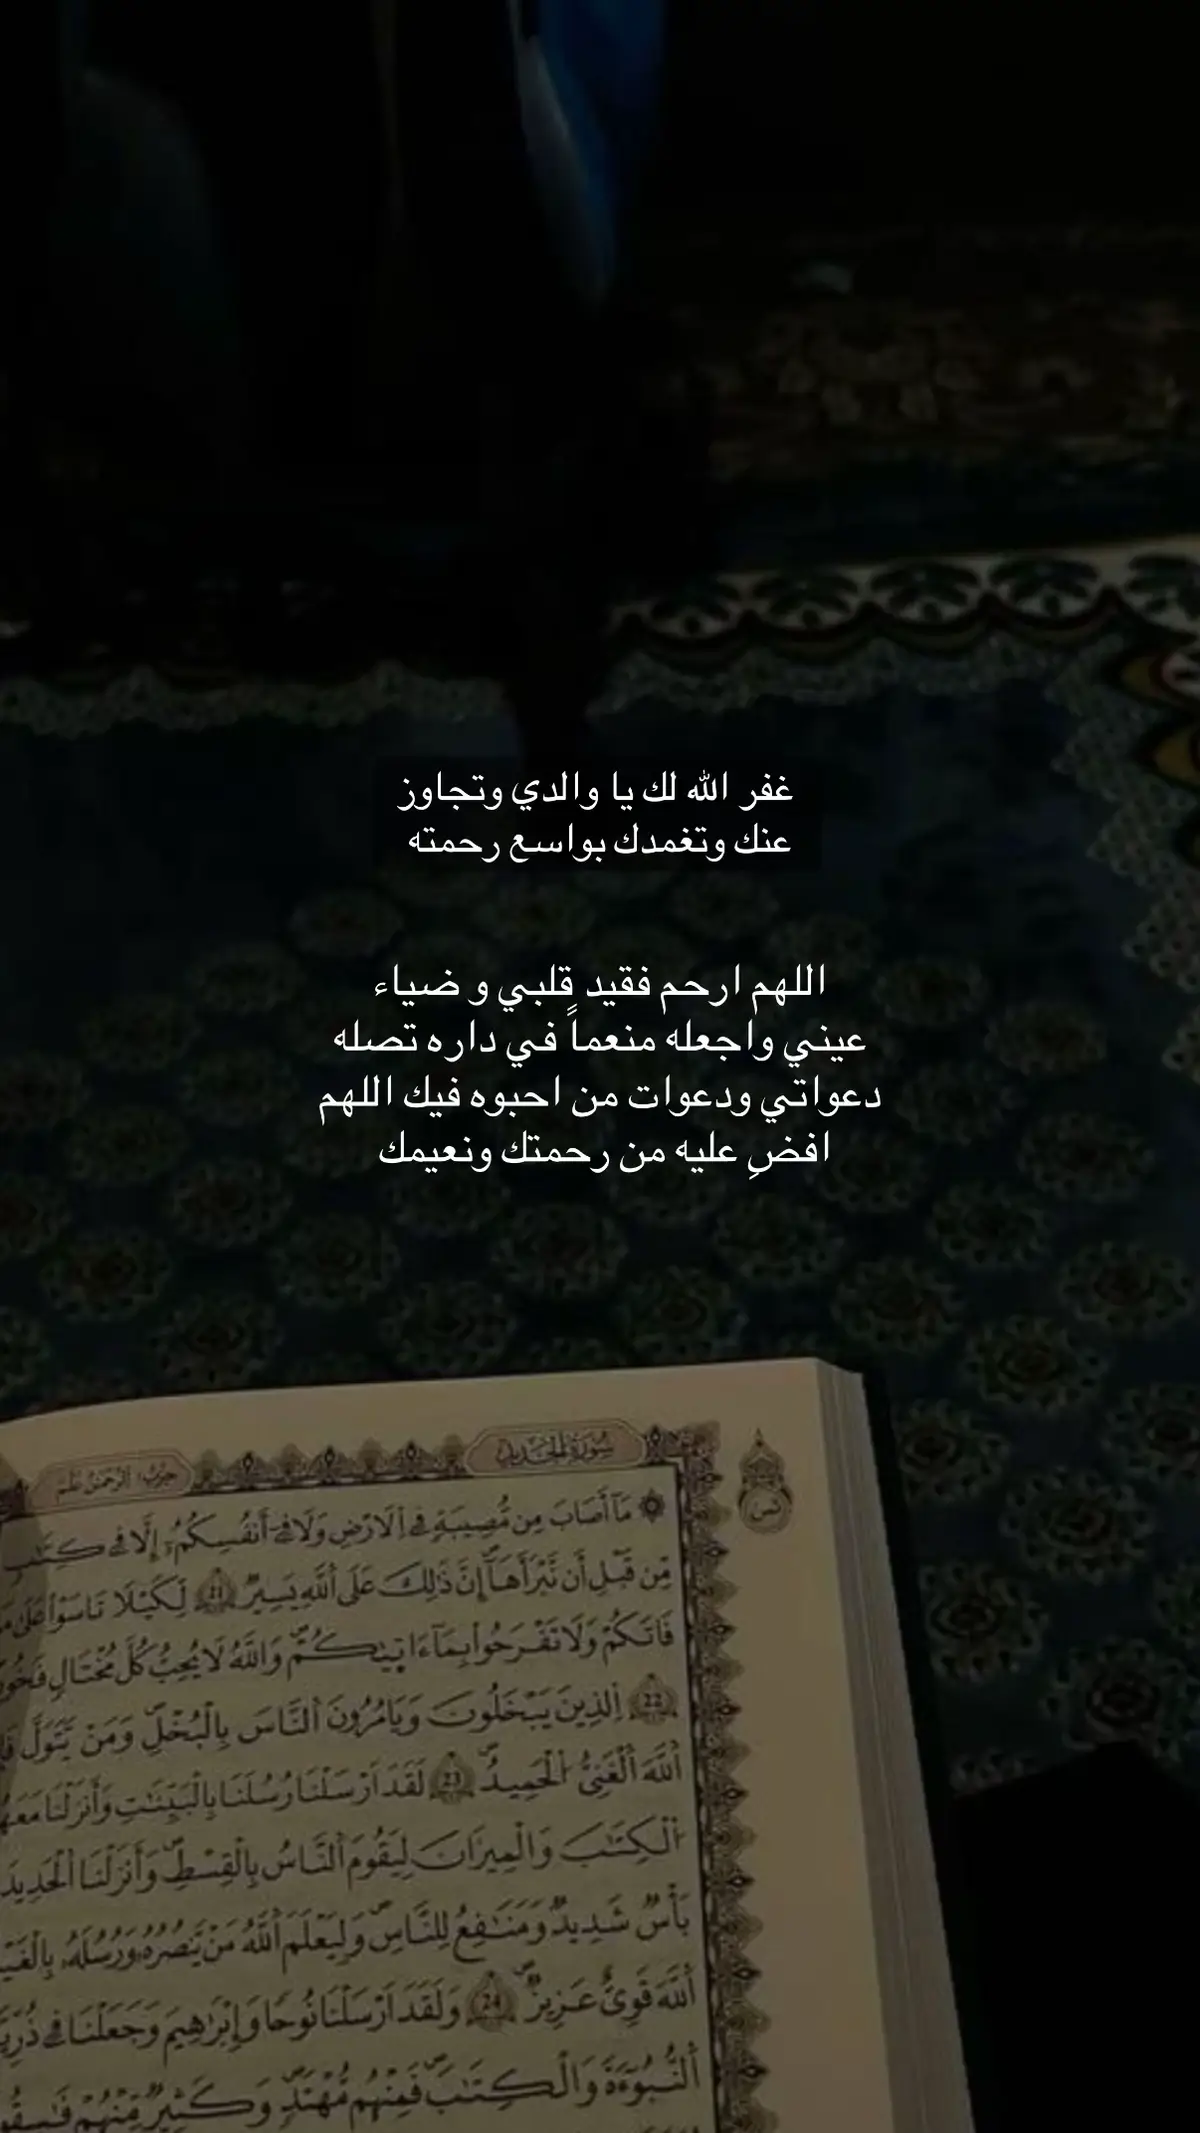 غفر الله لك يا والدي وتجاوز
عنك وتغمدك بواسع رحمته
اللهم ارحم فقيد قلبي و ضياء
عيني واجعله منعماً في داره تصله
دعواتي ودعوات من احبوه فيك اللهم
افضِ عليه من رحمتك ونعيمك
سُورَةُ الحَدِيدِ
مَآ أَصَابَ مِن مُّصِيبَةٍ فِے اِ۬لَارْضِ وَلَا فِےٓ أَنفُسِكُمُۥٓ إِلَّا فِے كِتَٰبٍ
مِّن قَبْلِ أَن نَّبْرَأَهَآ إِنَّ ذَٰلِكَ عَلَى اَ۬للَّهِ يَسِيرٌ 21 لِّكَيْلَا تَاسَوْاْ عَلَىٰ
فَاتَكُمْ وَلَا تَفْرَحُواْ بِمَآ ءَات۪يٰكُمْ وَاللَّهُ لَا يُحِبُّ كُلَّ مُخْتَالٍ فَخُورٍ
22 اِ۬لذِينَ يَبْخَلُونَ وَيَامُرُونَ اَ۬لنَّاسَ بِالْبُخْلِ وَمَنْ يَّتَوَلَّ
اَ۬للَّهَ اَ۬لْغَنِيُّ اُ۬لْحَمِيدُ 23 لَقَدَ اَرْسَلْنَا رُسُلَنَا بِالْبَيِّنَٰتِ وَأَنزَلْنَا مَعَهُمُ
اُ۬لْكِتَٰبَ وَالْمِيزَانَ لِيَقُومَ اَ۬لنَّاسُ بِالْقِسْطِ وَأَنزَلْنَا اَ۬لْحَدِيدَ
بَأْسٌ شَدِيدٌ وَمَنَٰفِعُ لِلنَّاسِ وَلِيَعْلَمَ اَ۬للَّهُ مَنْ يَّنصُرُهُۥ وَرُسُلَهُۥ بِالْغَيْبِ
اَ۬للَّهَ قَوِيٌّ عَزِيزٌ 24 وَلَقَدَ اَرْسَلْنَا نُوحًا وَإِبْرَٰهِيمَ وَجَعَلْنَا فِے
اَ۬لنُّبُوٓءَةَ وَالْكِتَٰبَ فَمِنْهُم مُّهْتَدٍ وَكَثِيرٌ مِّنْهُمْ